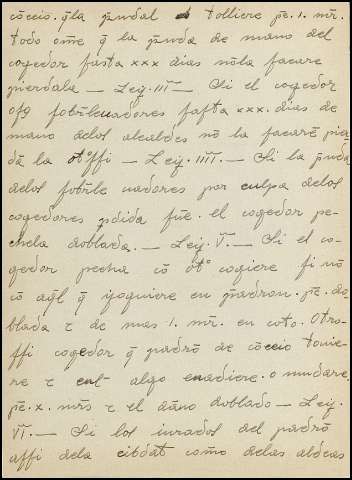 cōceio. q̄la p̄nda l tolliere pē. 1. mr̄.
todo ome q̄ la p̄nda de mano del
cogedor fasta xxx dias nōla sacare
pierdala — Ley. III — Si el cogedor
ofq̄ sobrleuadores fasta xxx. dias de
mano delos alcaldes nō la sacarē pier
dā la otossi — Ley. IIII. — Si la p̄nda
delos sobrele uadores por culpa delos
cogedores p̄dida fuē. el cogedor pe-
chela doblada. — Ley. V. — Si el co-
gedor pecha cō otº cogiere si nō
cō aq̄l q̄ yoguiere en p̄adron. pē. do-
blada τ de mas 1. mr̄. en coto. Otro-
ssi cogedor q̄ padrō de cōceio touie-
re τ en l algo enadiere. o mudare.
pē. x. mr̄s τ el dāno doblado — Ley.
VI. — Si los iurados del padrō
assi dela cibdat como delas aldeas